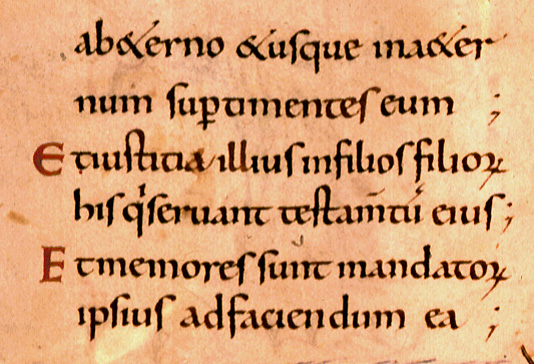 ab&erno &usque ina&er
num sup timentes eum ;
Etiustitia illius infilios filioꝝ
his qͥ seruant testam̅tū eius ;
Et memores sunt mandatoꝝ
ipsius adfaciendum ea ;